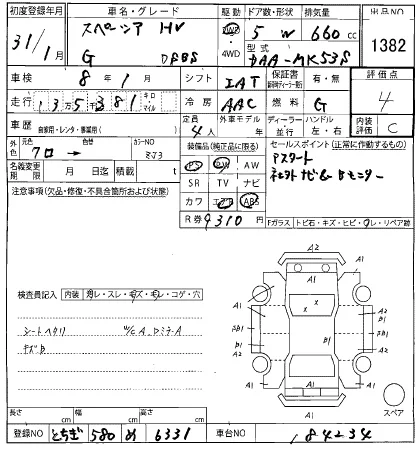 初度登録年月 車名・グレード 駆動 ドア数・形状 排気量 出品NO
31/1月 スペーシア HV 2WD 4WD 5 W 660cc 1382
G DBBS 型式 DAA-MK53S
車検 8年1月 シフト IAT 保証書 有・無 評価点
走行 135千381キロ 冷房 AAC 燃料 G 4
車歴 自家用・レンタ・事業用( ) 定員 4人 外車モデル年 ディーラー 並行 ハンドル 左・右 内装評価 C
外色 元色 クロ → 色替 カラーNO ZJ3
装備品(純正品に限る) セールスポイント(正常に作動するもの)
名義変更期限 月 日迄 積載 t
PS PW AW Pスタート
SR TV ナビ
注意事項(欠品・修復・不具合箇所および状態) カワ エアB ABS
R券 9310円 Fガラス トビ石・キズ・ヒビ・ワレ・リペア跡
検査員記入 内装 汚レ・スレ・キズ・キレ・コゲ・穴
シートヘタリ W/C A ドミラーA
キズB
A2
A1
A1 A1
A1 A1
A2 B1 B1 A2
A1 A1
A1
A2
スペア
長さ cm 幅 cm 高さ cm
登録NO とちぎ 580 め 6331 車台NO 184234